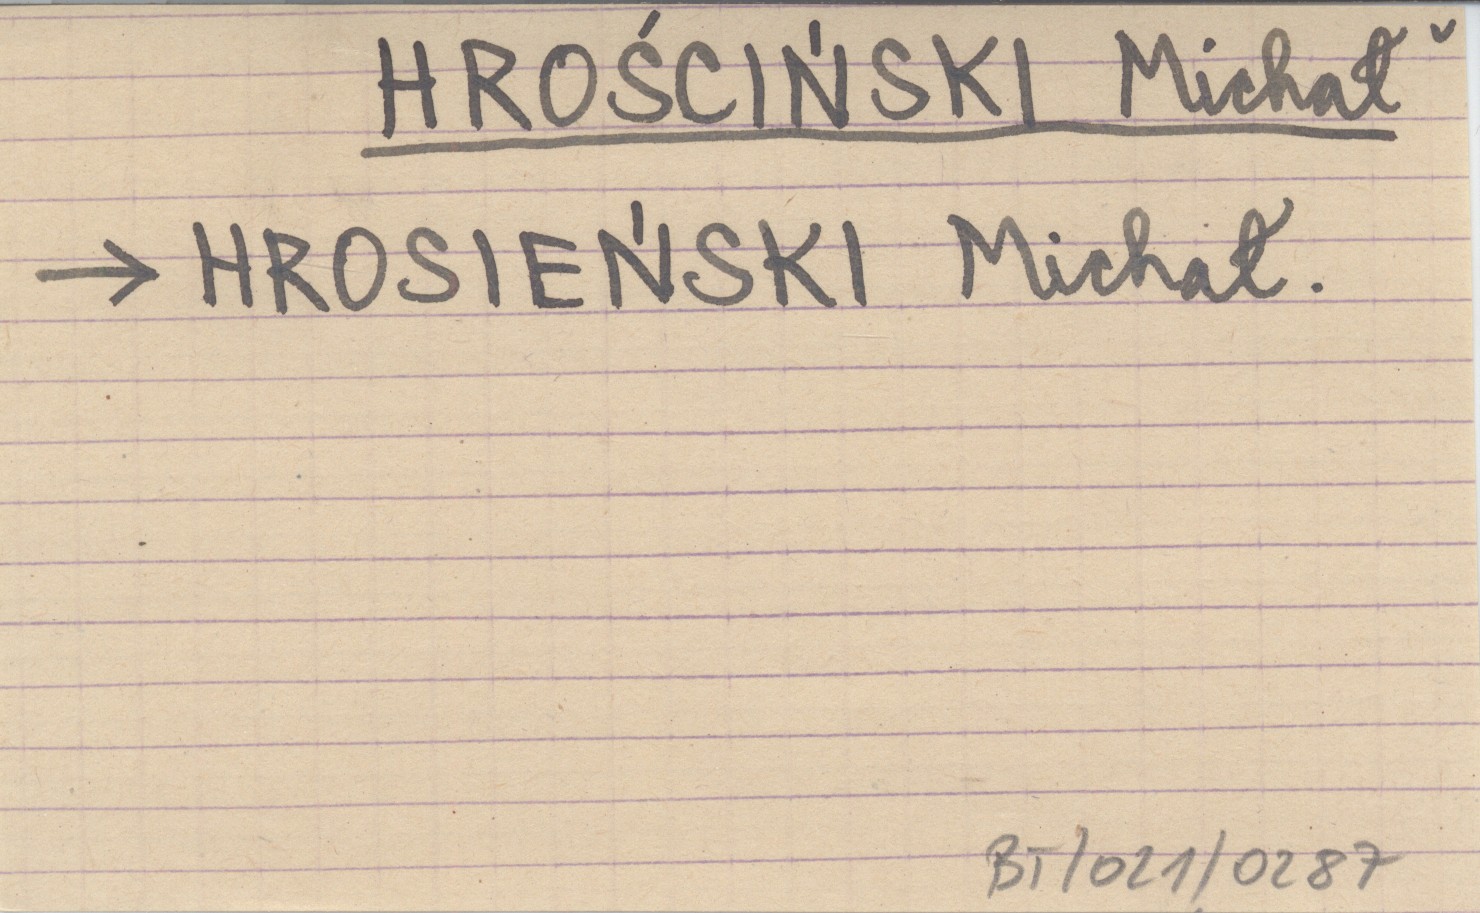 HROŚCIŃSKI Michał ˇ
→ HROSIEŃSKI Michał.
BT/021/0287